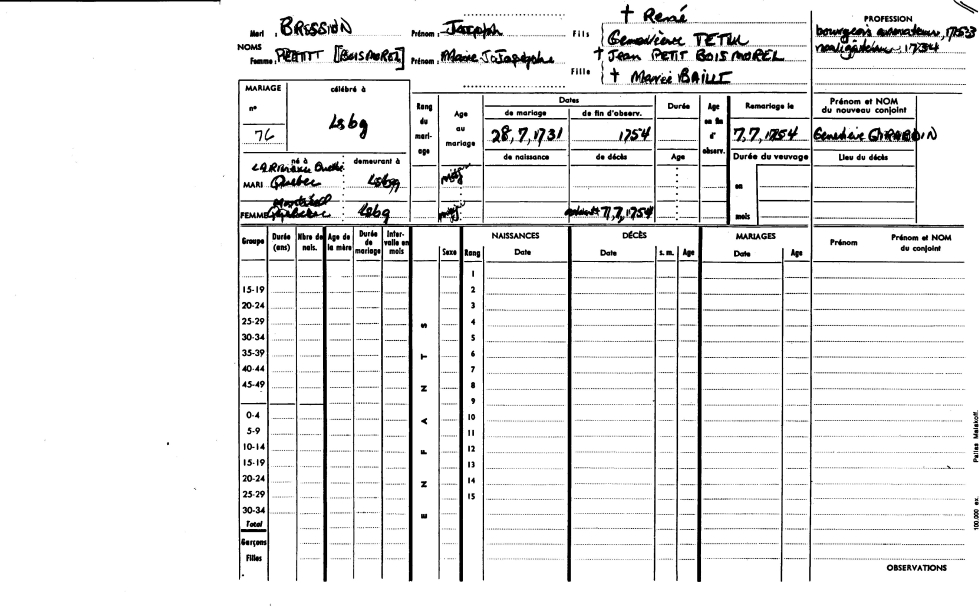 † René
PROFESSION
Mari BRESSION Prénom Joseph Fils Geneviève TETU
bourgeois 1733
navigateur 1734
NOMS
Femme PETIT [BOISMOREL] Prénom Marie Josephe Fille † Jean PETIT BOISMOREL
† Marie BAILLT
MARIAGE célébré à
n° 76
Lsbg
Rang du mari-age
Age au mariage
Dates
de mariage de fin d'observ.
28,7,1731 1754
Durée
Age en fin d' observ.
Remariage le
7,7,1754
Prénom et NOM
du nouveau conjoint
Geneviève GIRARDIN
de naissance de décès Age
Durée du veuvage
Lieu du décès
né à demeurant à
MARI Quebec Lsbg
en
FEMME Lsbg
avant 7,7,1754
mois
Groupe
Durée (ans)
Nbre de nais.
Age de la mère
Durée de mariage
Inter-valle en mois
ENFANTS
Sexe
Rang
NAISSANCES
Date
DÉCÈS
Date
s. m.
Age
MARIAGES
Date
Age
Prénom
Prénom et NOM
du conjoint
1
15-19 2
20-24 3
25-29 4
30-34 5
35-39 6
40-44 7
45-49 8
9
0-4 10
5-9 11
10-14 12
15-19 13
20-24 14
25-29 15
30-34
Total
Garçons
Filles
OBSERVATIONS
100.000 ex.